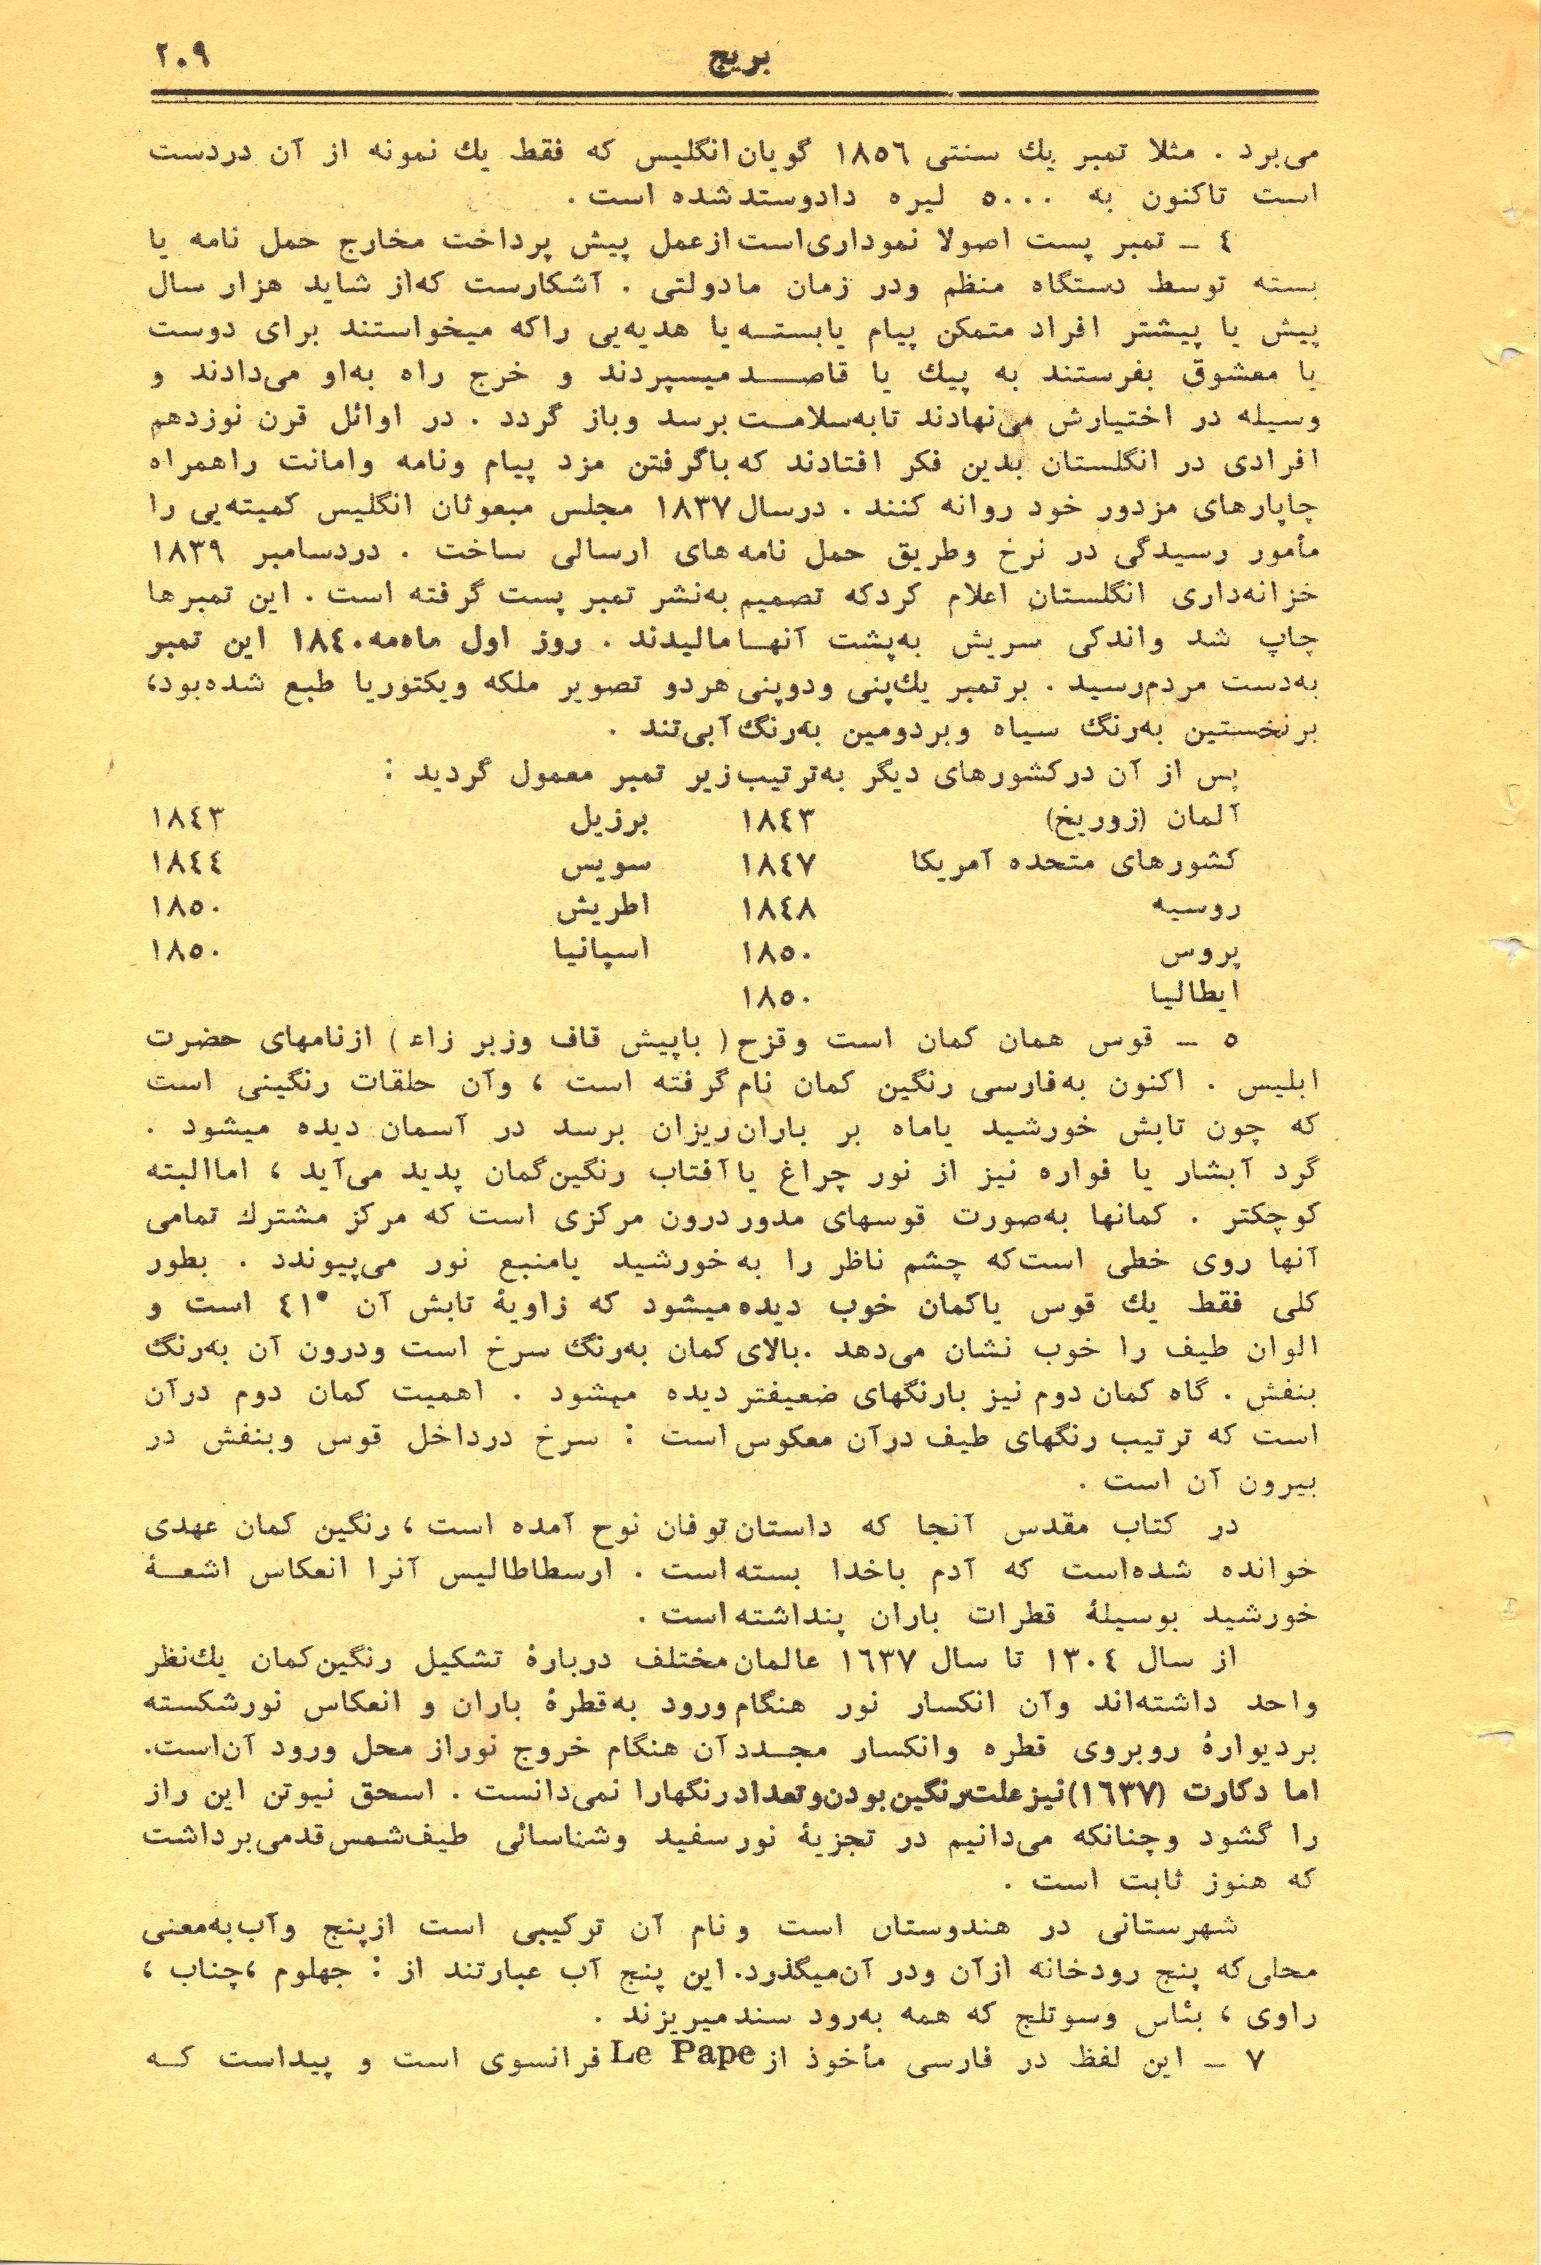 ۲۰۹ بریج
می‌برد . مثلا تمبر یك سنتی ۱۸۵۶ گویان انگلیس که فقط یك نمونه از آن دردست
است تاکنون به ۵۰۰۰ لیره دادوستد شده است .
۴ ــ تمبر پست اصولا نموداری‌است ازعمل پیش پرداخت مخارج حمل نامه یا
بسته توسط دستگاه منظم ودر زمان مادولتی . آشکارست که‌از شاید هزار سال
پیش یا پیشتر افراد متمکن پیام یابسته یا هدیه‌یی راکه میخواستند برای دوست
یا معشوق بفرستند به پیك یا قاصد میسپردند و خرج راه به‌او می‌دادند و
وسیله در اختیارش می‌نهادند تابه‌سلامت برسد وباز گردد . در اوائل قرن نوزدهم
افرادی در انگلستان بدین فکر افتادند که باگرفتن مزد پیام ونامه وامانت راهمراه
چاپارهای مزدور خود روانه کنند . درسال ۱۸۳۷ مجلس مبعوثان انگلیس کمیته‌یی را
مأمور رسیدگی در نرخ وطریق حمل نامه‌های ارسالی ساخت . دردسامبر ۱۸۳۹
خزانه‌داری انگلستان اعلام کردکه تصمیم به‌نشر تمبر پست گرفته است . این تمبرها
چاپ شد واندکی سریش به‌پشت آنها مالیدند . روز اول ماه‌مه ۱۸۴۰ این تمبر
به‌دست مردم‌رسید . برتمبر یك‌پنی ودوپنی هردو تصویر ملکه ویکتوریا طبع شده‌بود،
برنخستین به‌رنگ سیاه وبردومین به‌رنگ آبی‌تند .
پس از آن درکشورهای دیگر به‌ترتیب زیر تمبر معمول گردید :
آلمان (زوریخ) ۱۸۴۳ برزیل ۱۸۴۳
کشورهای متحده آمریکا ۱۸۴۷ سویس ۱۸۴۴
روسیه ۱۸۴۸ اطریش ۱۸۵۰
پروس ۱۸۵۰ اسپانیا ۱۸۵۰
ایطالیا ۱۸۵۰
۵ ــ قوس همان کمان است وقزح ( باپیش قاف وزبر زاء ) ازنامهای حضرت
ابلیس . اکنون به‌فارسی رنگین کمان نام گرفته است ، وآن حلقات رنگینی است
که چون تابش خورشید یاماه بر باران‌ریزان برسد در آسمان دیده میشود .
گرد آبشار یا فواره نیز از نور چراغ یا آفتاب رنگین‌گمان پدید می‌آید ، اماالبته
کوچکتر . کمانها به‌صورت قوسهای مدور درون مرکزی است که مرکز مشترك تمامی
آنها روی خطی است‌که چشم ناظر را به خورشید یامنبع نور می‌پیوندد . بطور
کلی فقط یك قوس یاکمان خوب دیده میشود که زاویۀ تابش آن ۴۱° است و
الوان طیف را خوب نشان می‌دهد .بالای کمان به‌رنگ سرخ است ودرون آن به‌رنگ
بنفش . گاه کمان دوم نیز بارنگهای ضعیفتر دیده میشود . اهمیت کمان دوم درآن
است که ترتیب رنگهای طیف درآن معکوس است : سرخ درداخل قوس وبنفش در
بیرون آن است .
در کتاب مقدس آنجا که داستان توفان نوح آمده است ، رنگین کمان عهدی
خوانده شده‌است که آدم باخدا بسته است . ارسطاطالیس آنرا انعکاس اشعۀ
خورشید بوسیلۀ قطرات باران پنداشته است .
از سال ۱۳۰۴ تا سال ۱۶۳۷ عالمان مختلف دربارۀ تشکیل رنگین‌کمان یك‌نظر
واحد داشته‌اند وآن انکسار نور هنگام ورود به‌قطرۀ باران و انعکاس نورشکسته
بردیوارۀ روبروی قطره وانکسار مجدد آن هنگام خروج نوراز محل ورود آن‌است.
اما دکارت (۱۶۳۷) نیز علت رنگین بودن وتعداد رنگهارا نمی‌دانست . اسحق نیوتن این راز
را گشود وچنانکه می‌دانیم در تجزیۀ نور سفید وشناسائی طیف‌شمس قدمی برداشت
که هنوز ثابت است .
شهرستانی در هندوستان است ونام آن ترکیبی است ازپنج وآب به‌معنی
محلی‌که پنج رودخانه ازآن ودر آن‌میگذرد. این پنج آب عبارتند از : جهلوم ،چناب ،
راوی ، بئاس وسوتلج که همه به‌رود سند میریزند .
۷ ــ این لفظ در فارسی مأخوذ از Le Pape فرانسوی است و پیداست که